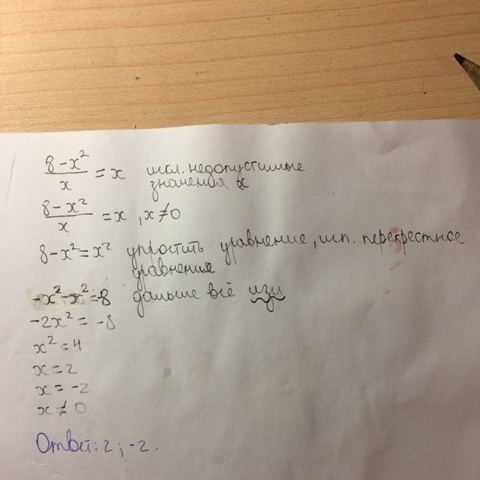 8-x²/x = x искл. недопустимые
значения x
8-x²/x = x, x≠0
8-x²=x² упростить уравнение, исп. перекрестное
уравнение
-x²-x²=-8 дальше всё изи
-2x² = -8
x²=4
x=2
x=-2
x≠0
Ответ: 2; -2.